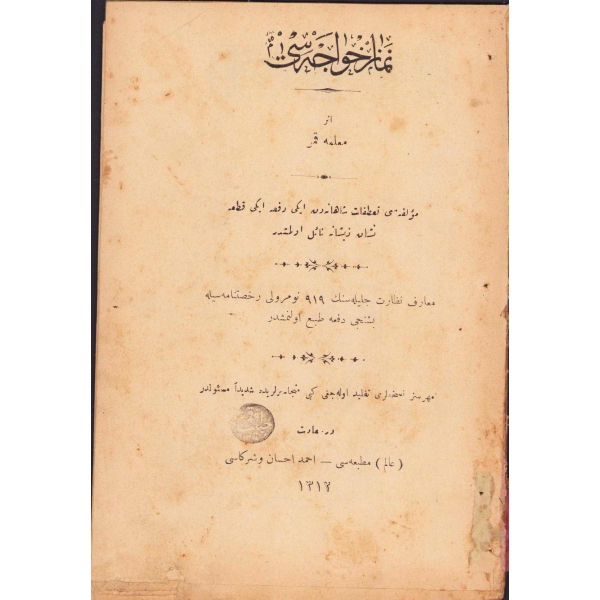 نماز خواجه سى
اثر
معلمه قمر
مؤلفه سى تعطفات شاهانه دن ايكى دفعه ايكى قطعه
نشان ذيشانه نائل اولمشدر
معارف نظارت جليله سنك ٩١٩ نومرولى رخصتنامه سيله
بشنجى دفعه طبع اولنمشدر
مهرسز نسخه لرى تقليد اوله جغى كبى متجاسرلريده شديداً مسئولدر
در سعادت
( عالم ) مطبعه سى — احمد احسان وشركاسى
١٣١٣